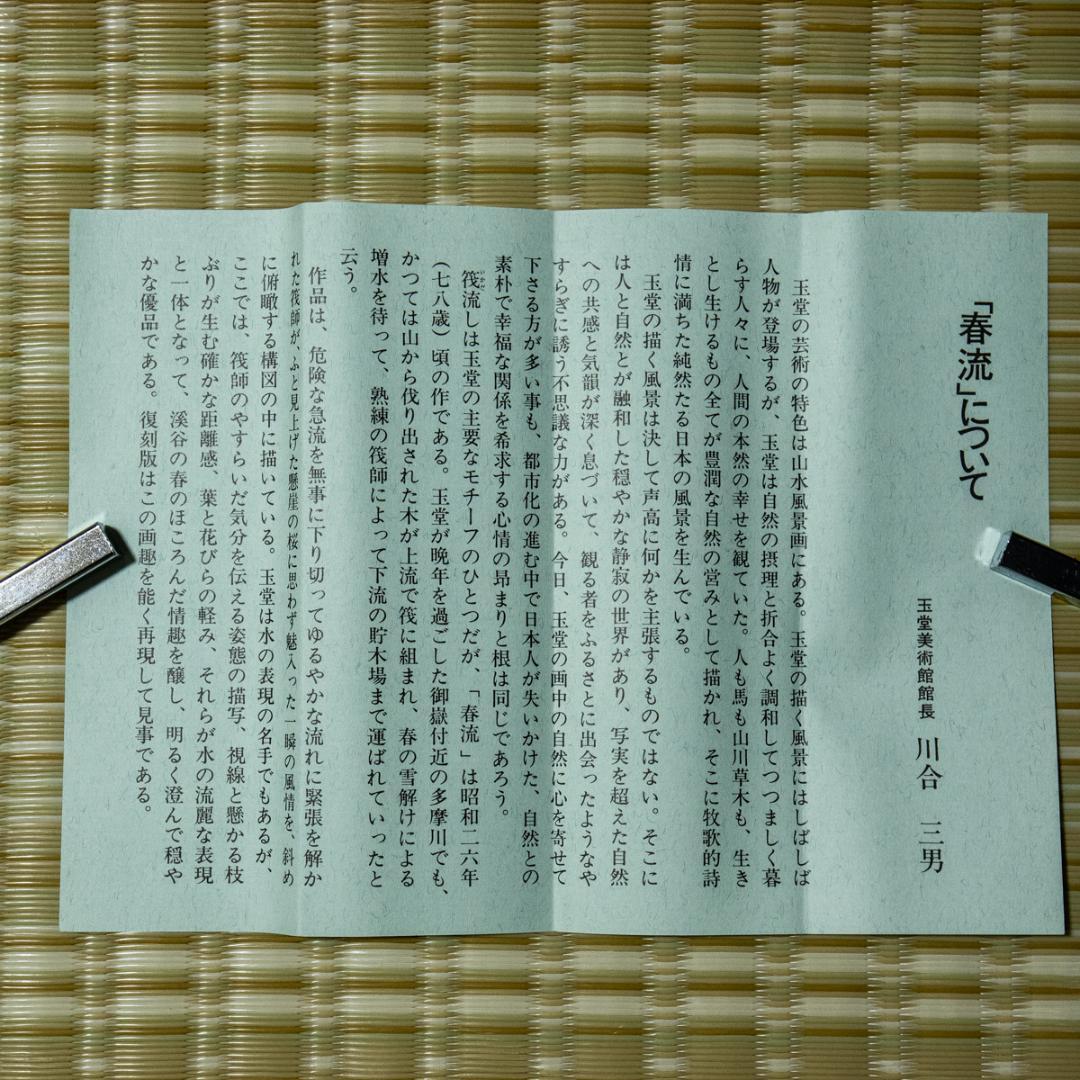 「春流」について
玉堂美術館館長　川合　三男
玉堂の芸術の特色は山水風景画にある。玉堂の描く風景にはしばしば
人物が登場するが、玉堂は自然の摂理と折合よく調和してつつましく暮
らす人々に、人間の本然の幸せを観ていた。人も馬も山川草木も、生き
とし生けるもの全てが豊潤な自然の営みとして描かれ、そこに牧歌的詩
情に満ちた純然たる日本の風景を生んでいる。
玉堂の描く風景は決して声高に何かを主張するものではない。そこに
は人と自然とが融和した穏やかな静寂の世界があり、写実を超えた自然
への共感と気韻が深く息づいて、観る者をふるさとに出会ったようなや
すらぎに誘う不思議な力がある。今日、玉堂の画中の自然に心を寄せて
下さる方が多い事も、都市化の進む中で日本人が失いかけた、自然との
素朴で幸福な関係を希求する心情の昂まりと根は同じであろう。
筏流しは玉堂の主要なモチーフのひとつだが、「春流」は昭和二六年
（七八歳）頃の作である。玉堂が晩年を過ごした御嶽付近の多摩川でも、
かつては山から伐り出された木が上流で筏に組まれ、春の雪解けによる
増水を待って、熟練の筏師によって下流の貯木場まで運ばれていったと
云う。
作品は、危険な急流を無事に下り切ってゆるやかな流れに緊張を解か
れた筏師が、ふと見上げた懸崖の桜に思わず魅入った一瞬の風情を、斜め
に俯瞰する構図の中に描いている。玉堂は水の表現の名手でもあるが、
ここでは、筏師のやすらいだ気分を伝える姿態の描写、視線と懸かる枝
ぶりが生む確かな距離感、葉と花びらの軽み、それらが水の流麗な表現
と一体となって、溪谷の春のほころんだ情趣を醸し、明るく澄んで穏や
かな優品である。復刻版はこの画趣を能く再現して見事である。